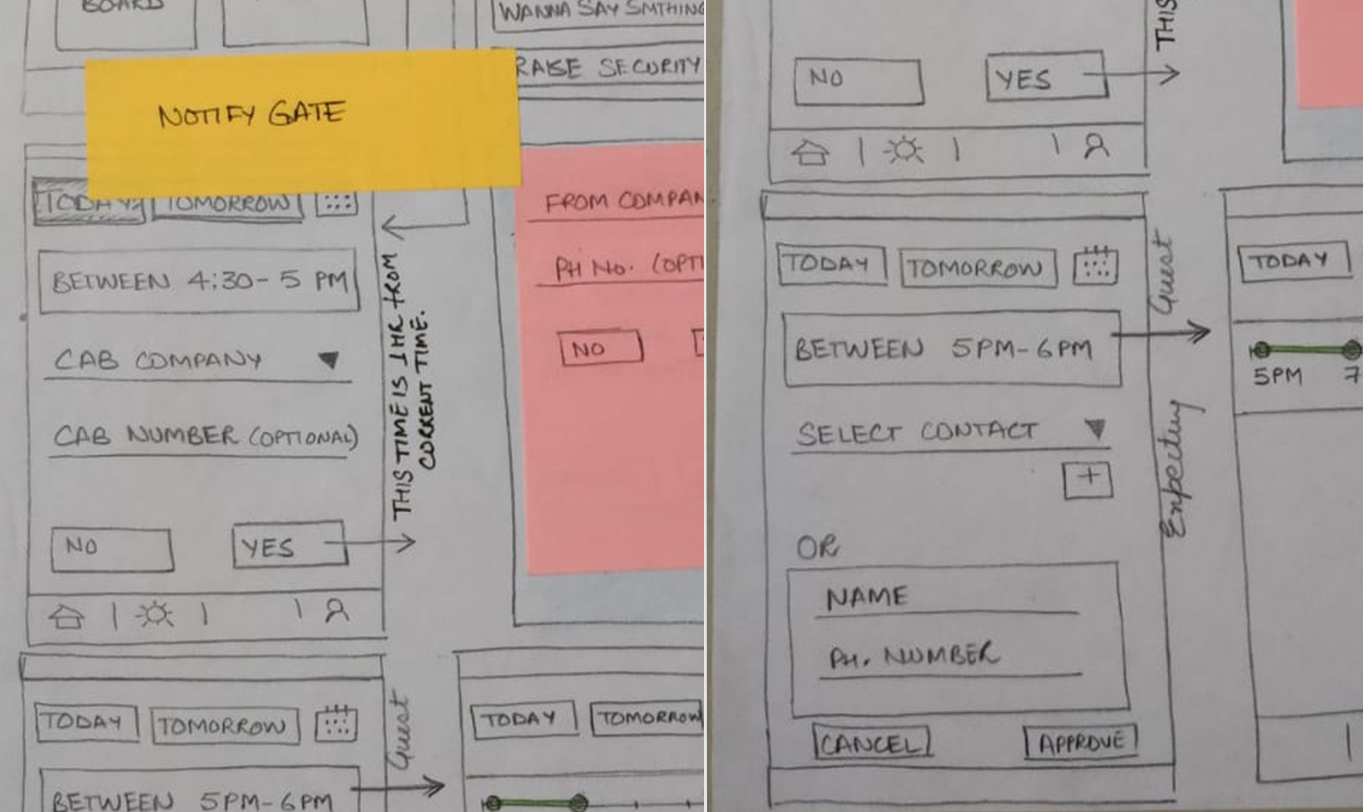 BOARD
WANNA SAY SMTHING
RAISE SECURITY
NOTIFY GATE
TODAY TOMORROW
BETWEEN 4:30-5 PM
CAB COMPANY
CAB NUMBER (OPTIONAL)
NO YES
THIS TIME IS 1 HR FROM
CURRENT TIME.
FROM COMPAN
PH NO. (OPTI
NO
TODAY TOMORROW
BETWEEN 5PM-6PM
Guest
TODAY TOMORROW
THIS
NO YES
TODAY TOMORROW
BETWEEN 5PM-6PM
SELECT CONTACT
+
OR
NAME
PH. NUMBER
CANCEL APPROVE
Guest
Expecting
TODAY
5PM 7